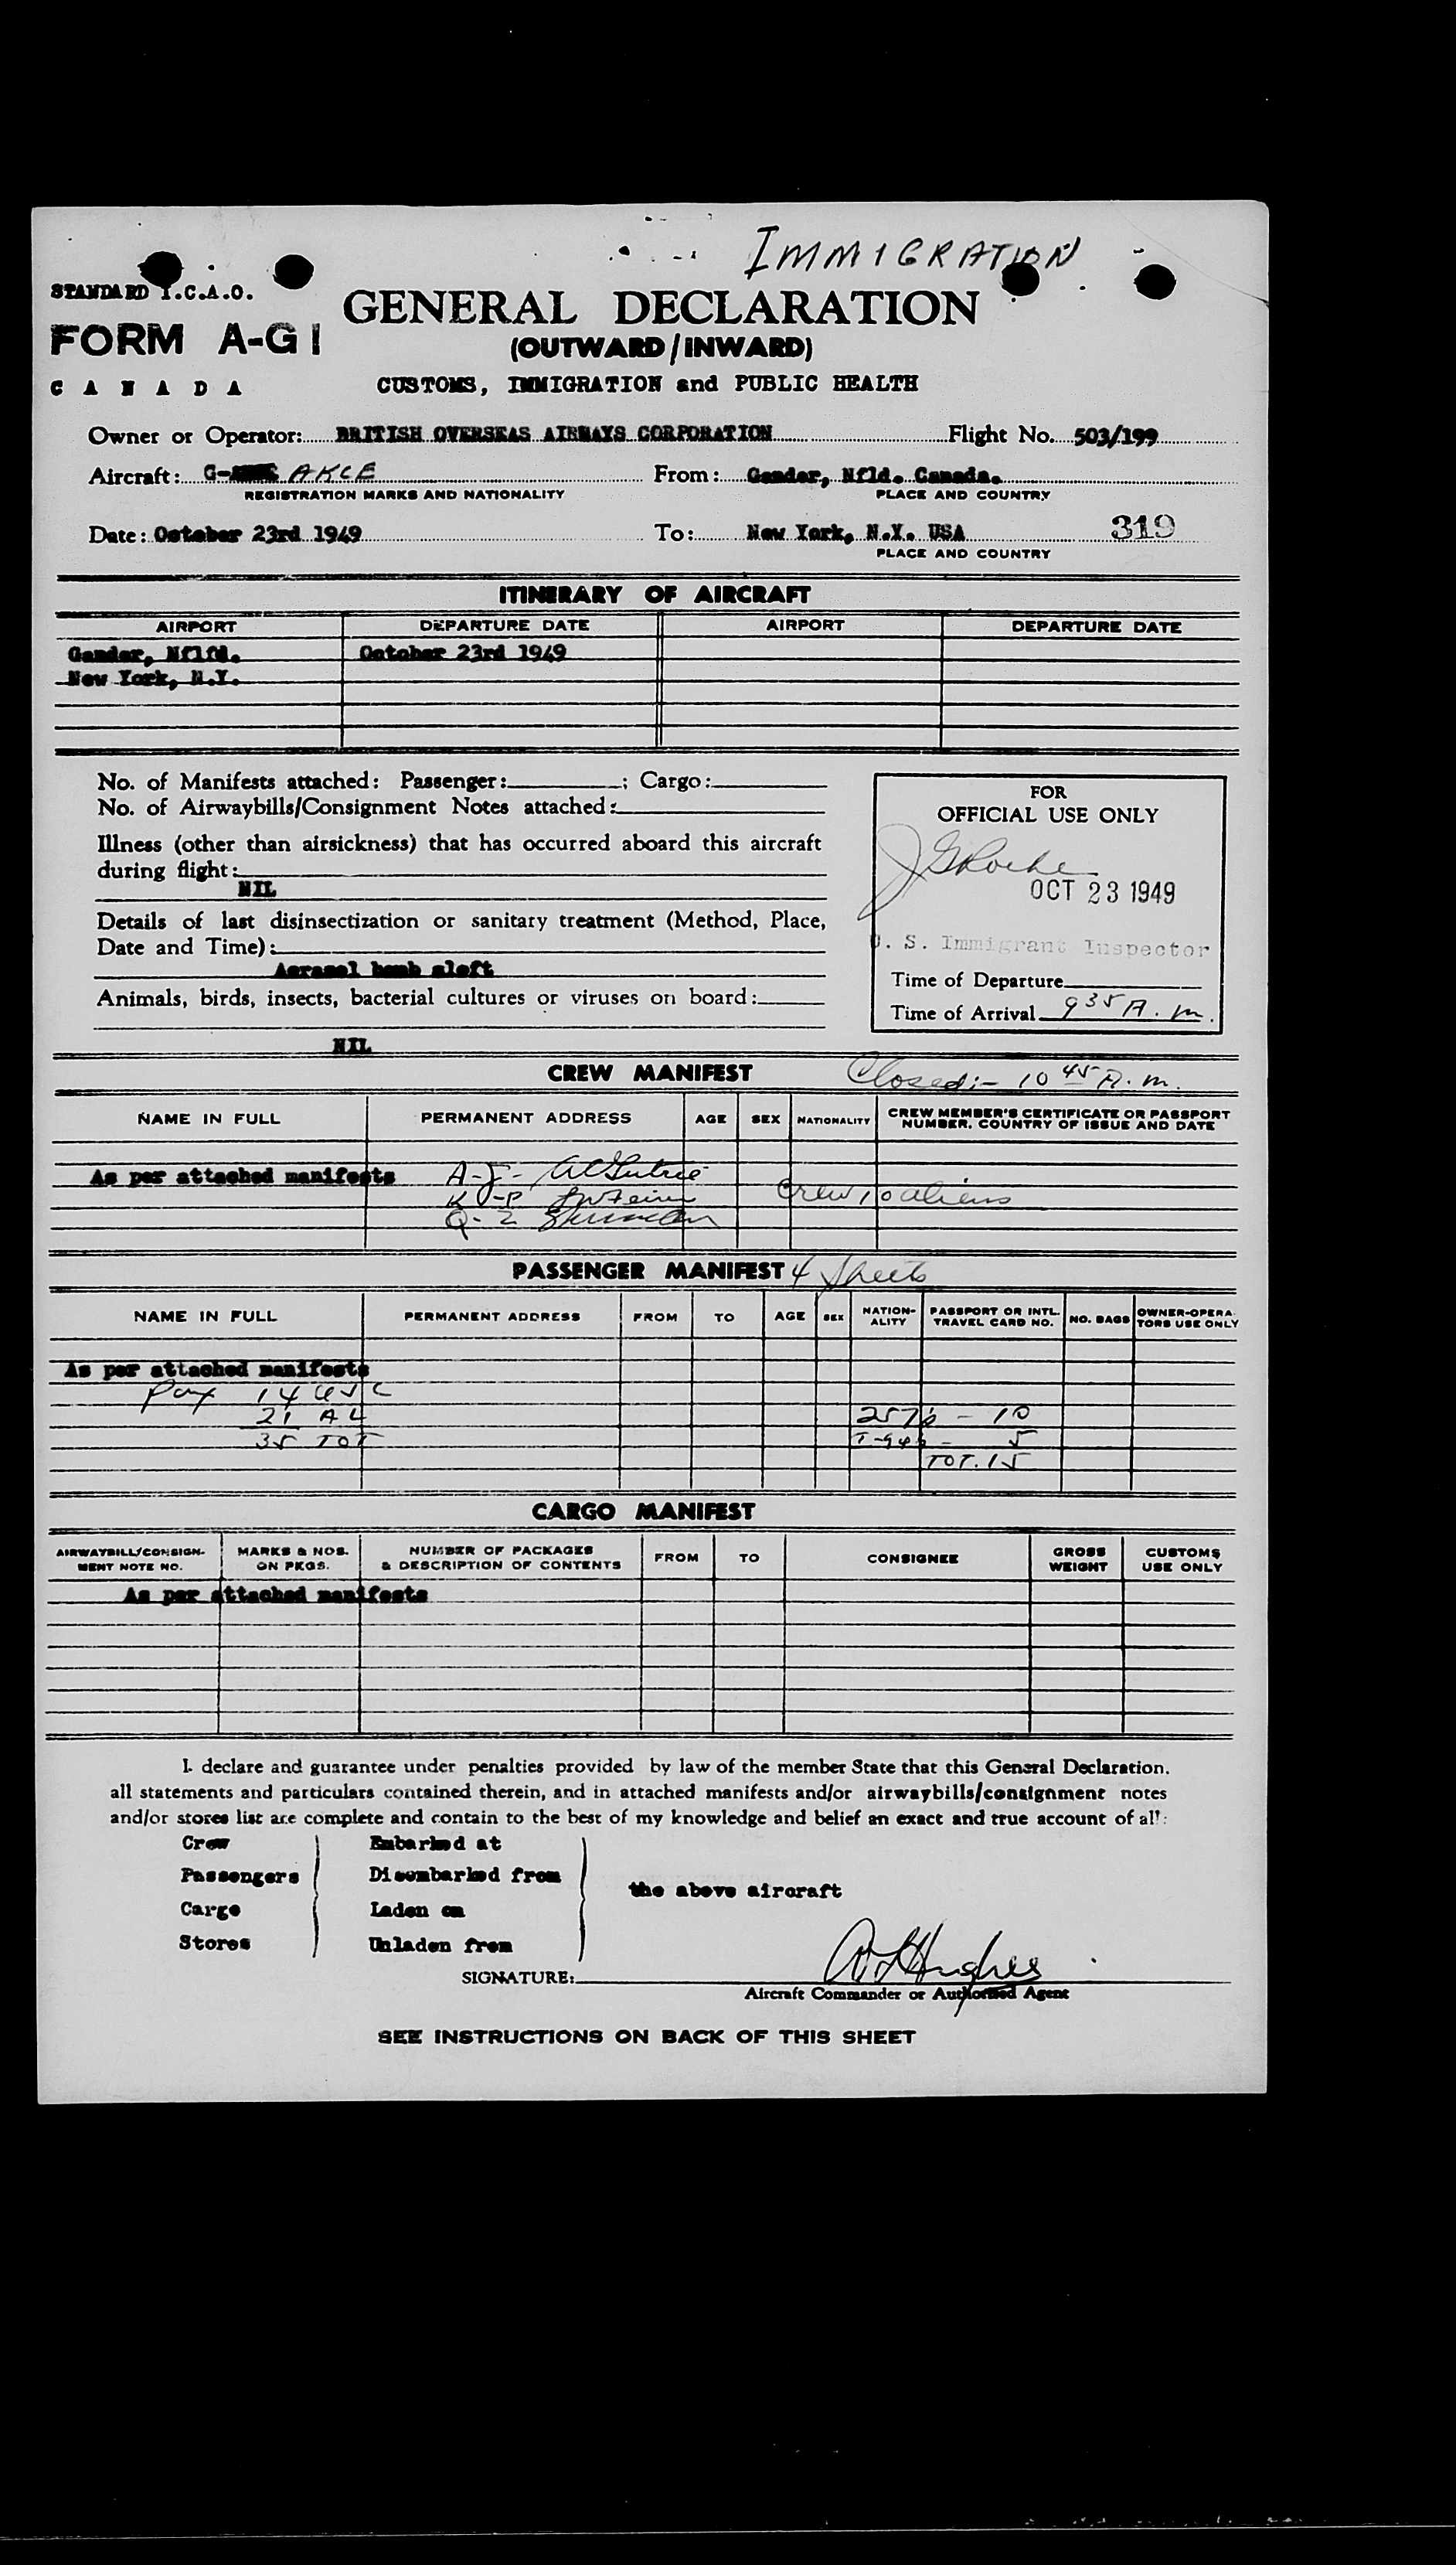 IMMIGRATION
STANDARD I.C.A.O.
GENERAL DECLARATION
FORM A-G1
(OUTWARD/INWARD)
CANADA
CUSTOMS, IMMIGRATION and PUBLIC HEALTH
Owner or Operator: BRITISH OVERSEAS AIRWAYS CORPORATION Flight No. 503/199
Aircraft: G- AKCE From: Gander, Nfld. Canada.
REGISTRATION MARKS AND NATIONALITY PLACE AND COUNTRY
Date: October 23rd 1949 To: New York, N.Y. USA 319
PLACE AND COUNTRY
ITINERARY OF AIRCRAFT
AIRPORT DEPARTURE DATE AIRPORT DEPARTURE DATE
Gander, Nflfd. October 23rd 1949
New York, N.Y.
No. of Manifests attached: Passenger: ; Cargo:
No. of Airwaybills/Consignment Notes attached:
Illness (other than airsickness) that has occurred aboard this aircraft
during flight:
NIL
Details of last disinsectization or sanitary treatment (Method, Place,
Date and Time):
Aerosol bomb aloft
Animals, birds, insects, bacterial cultures or viruses on board:
NIL
FOR
OFFICIAL USE ONLY
OCT 23 1949
U. S. Immigrant Inspector
Time of Departure
Time of Arrival 9 35 A.m.
CREW MANIFEST Closed:- 10 45 A.m.
NAME IN FULL PERMANENT ADDRESS AGE SEX NATIONALITY CREW MEMBER'S CERTIFICATE OR PASSPORT NUMBER, COUNTRY OF ISSUE AND DATE
As per attached manifests A-J-
K-P Crew 10 aliens
Q-Z
PASSENGER MANIFEST 4 Sheets
NAME IN FULL PERMANENT ADDRESS FROM TO AGE SEX NATION-ALITY PASSPORT OR INTL. TRAVEL CARD NO. NO. BAGS OWNER-OPERATORS USE ONLY
As per attached manifests
Pax 14 USC
21 AL 257b - 10
35 TOT - 5
TOT. 15
CARGO MANIFEST
AIRWAYBILL/CONSIGN-MENT NOTE NO. MARKS & NOS. ON PKGS. NUMBER OF PACKAGES & DESCRIPTION OF CONTENTS FROM TO CONSIGNEE GROSS WEIGHT CUSTOMS USE ONLY
As per attached manifests
I declare and guarantee under penalties provided by law of the member State that this General Declaration.
all statements and particulars contained therein, and in attached manifests and/or airwaybills/consignment notes
and/or stores list are complete and contain to the best of my knowledge and belief an exact and true account of all:
Crew Embarked at
Passengers Disembarked from
the above aircraft
Cargo Laden on
Stores Unladen from
SIGNATURE: Hughes
Aircraft Commander or Authorised Agent
SEE INSTRUCTIONS ON BACK OF THIS SHEET